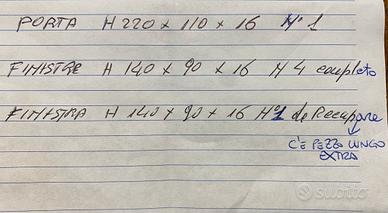 PORTA H 220 x 110 x 16 N° 1
FINISTRE H 140 x 90 x 16 N 4 completo
FINISTRA H 140 x 90 x 16 N° 1 da Recupare
C'È PEZZO LUNGO
EXTRA
subito